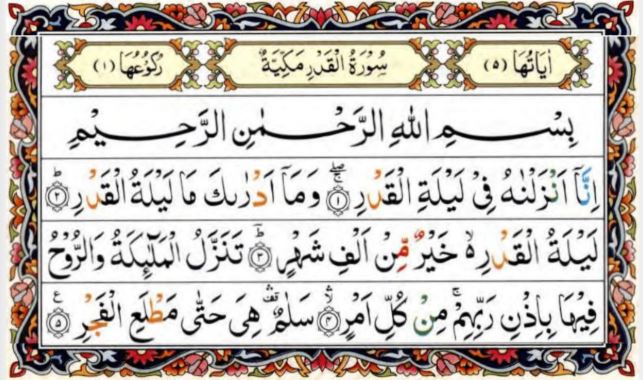 اٰيَاتُهَا (٥) سُوْرَةُ الْقَدْرِ مَكِّيَّةٌ رُكُوْعُهَا (١)
بِسْمِ اللّٰهِ الرَّحْمٰنِ الرَّحِيْمِ
اِنَّاۤ اَنْزَلْنٰهُ فِیْ لَیْلَةِ الْقَدْرِ ۚۖ ﴿١﴾ وَ مَاۤ اَدْرٰىكَ مَا لَیْلَةُ الْقَدْرِ ؕ ﴿٢﴾
لَیْلَةُ الْقَدْرِ ۙ۬ خَیْرٌ مِّنْ اَلْفِ شَهْرٍ ؕ ﴿٣﴾ تَنَزَّلُ الْمَلٰٓىِٕكَةُ وَ الرُّوْحُ
فِیْهَا بِاِذْنِ رَبِّهِمْ ۚ مِنْ كُلِّ اَمْرٍ ۙۛ ﴿٤﴾ سَلٰمٌ ۛ۫ هِیَ حَتّٰی مَطْلَعِ الْفَجْرِ ﴿٥﴾ ع